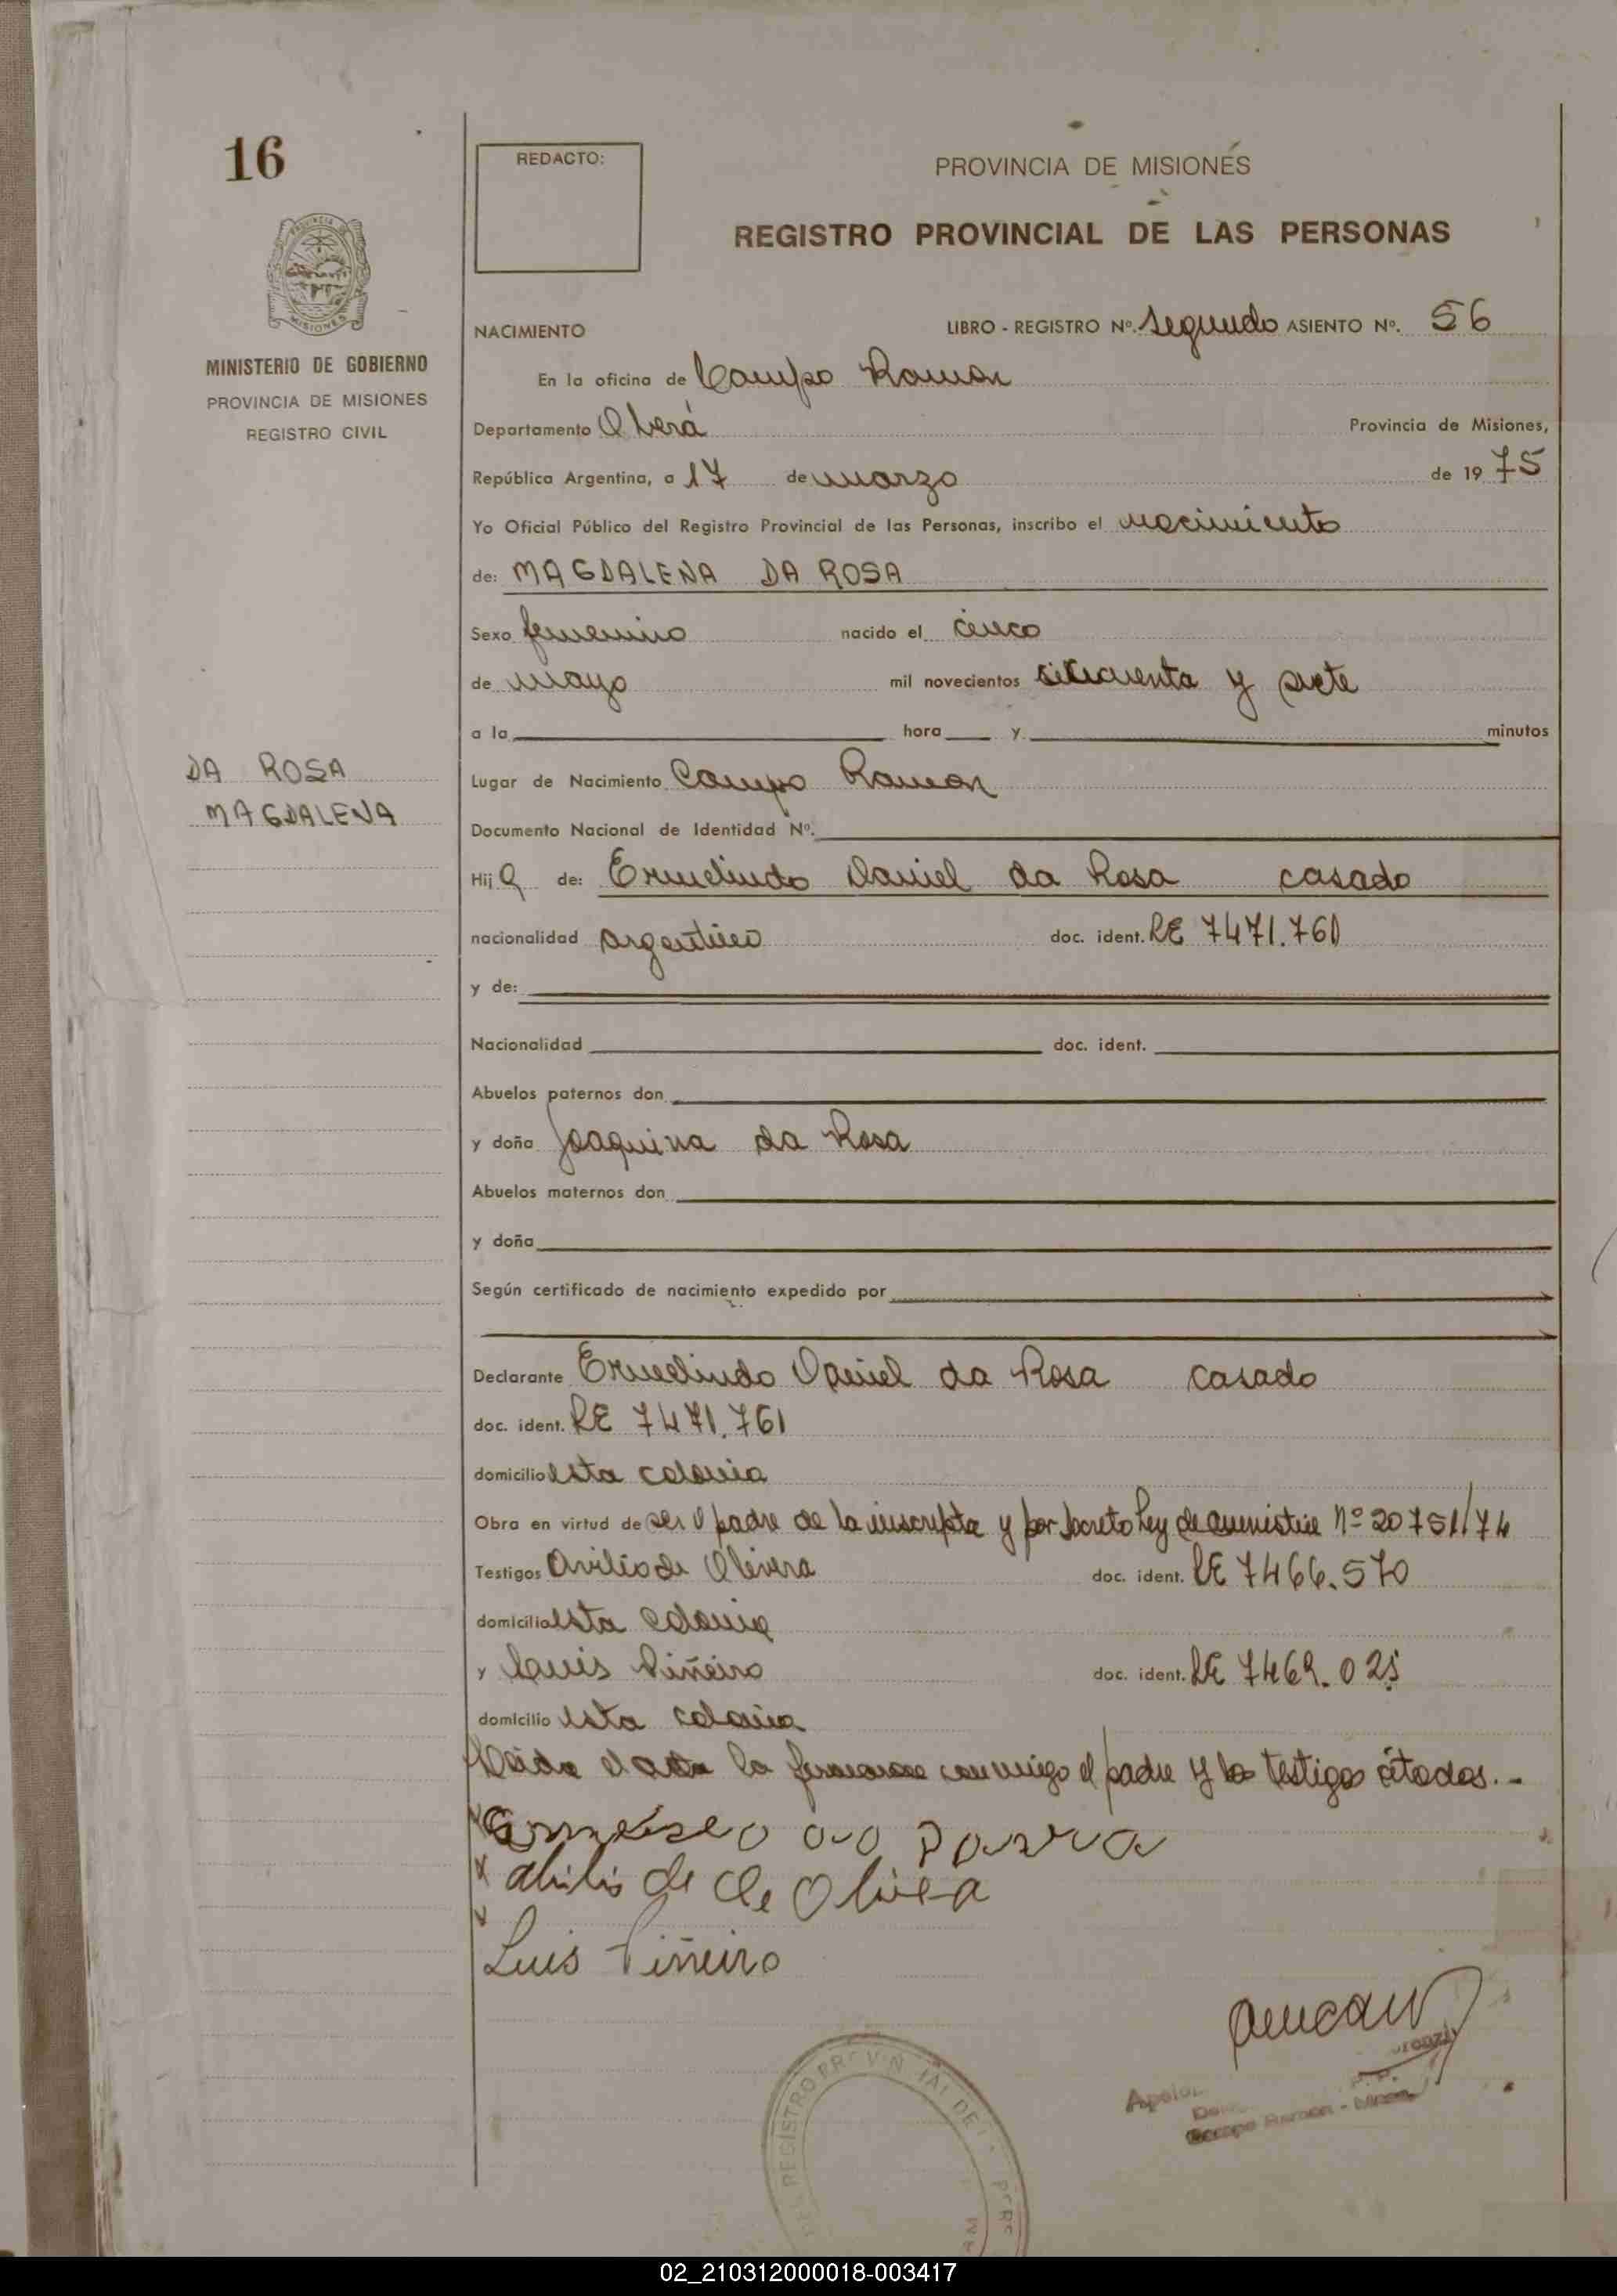 16
REDACTO:
PROVINCIA DE MISIONES
REGISTRO PROVINCIAL DE LAS PERSONAS
PROVINCIA DE MISIONES
MINISTERIO DE GOBIERNO
PROVINCIA DE MISIONES
REGISTRO CIVIL
DA ROSA
MAGDALENA
NACIMIENTO LIBRO - REGISTRO Nº. Segundo ASIENTO Nº. 56
En la oficina de Campo Ramon
Departamento Oberá Provincia de Misiones,
República Argentina, a 17 de marzo de 19 75
Yo Oficial Público del Registro Provincial de las Personas, inscribo el nacimiento
de: MAGDALENA DA ROSA
Sexo femenino nacido el cinco
de mayo mil novecientos cincuenta y siete
a la hora y minutos
Lugar de Nacimiento Campo Ramon
Documento Nacional de Identidad Nº.
Hija de: Ermelindo Daniel da Rosa casado
nacionalidad argentino doc. ident. LE 7471.761
y de:
Nacionalidad doc. ident.
Abuelos paternos don
y doña Joaquina da Rosa
Abuelos maternos don
y doña
Según certificado de nacimiento expedido por
Declarante Ermelindo Daniel da Rosa casado
doc. ident. LE 7471.761
domicilio esta colonia
Obra en virtud de ser el padre de la inscripta y por Decreto Ley de amnistia Nº 20751/74
Testigos Avilio de Olivera doc. ident. LE 7466.570
domicilio esta colonia
y Luis Piñeiro doc. ident. LE 7469.025
domicilio esta colonia
Leida el acta la firmaron conmigo el padre y los testigos citados.-
de Olivera
Luis Piñeiro
REGISTRO PROVINCIAL DE
Campo Ramon - Mnes.
02_210312000018-003417